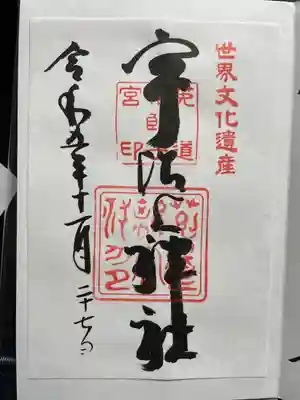 世界文化遺産
宇治上神社
令和五年十一月二十七日